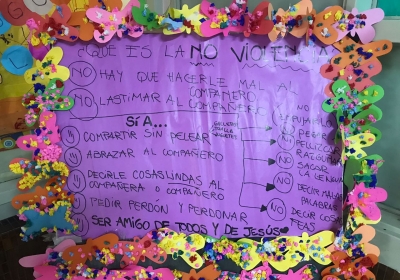 ¿QUE ES LA NO VIOLENCIA?
NO HAY QUE HACERLE MAL AL COMPAÑERO
NO LASTIMAR AL COMPAÑERO
SÍ A...
COMPARTIR SIN PELEAR
ABRAZAR AL COMPAÑERO
DECIRLE COSAS LINDAS AL
COMPAÑERA O COMPAÑERO
PEDIR PERDÓN Y PERDONAR
SER AMIGO DE TODOS Y DE JESÚS
NO
PEGAR
PELLIZCOS
SACAR
LA LENGUA
DECIR MALAS
PALABRAS
NO DECIR COSAS
FEAS